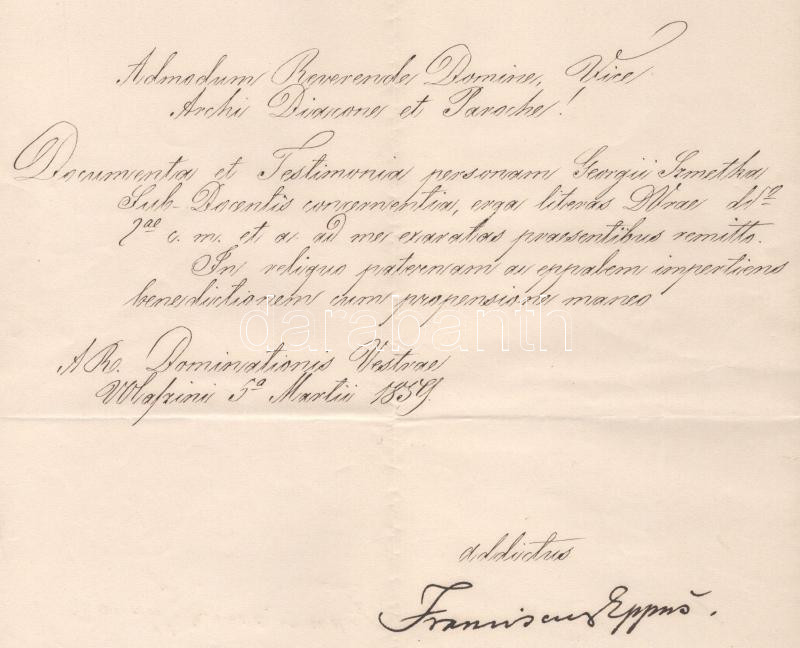 Admodum Reverende Domine, Vice
Archi Diacone et Paroche!
Documenta et Testimonia personam Georgii Szmetka
Sub-Docentis concernentia, erga literas Dvrae ddº
7ae c. m. et a. ad me exaratas praesentibus remitto.
In reliquo paternam ac eppalem impertiens
benedictionem cum propensione maneo
darabanth
A R. Dominationis Vestrae
5a Martii 1859.
addictus
Franciscus Eppus.